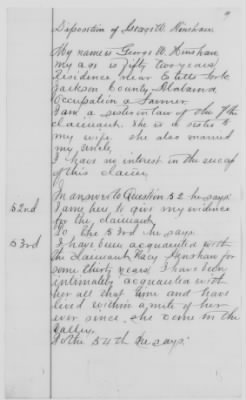 9
Deposition of George W. Hinshaw
My name is George W. Hinshaw
my age is fifty two years
Residence near Estills Fork
Jackson County, Alabama
Occupation a Farmer
I am a
claimant. She is a sister to
my wife she also married
my uncle,
I have no interest in the success
of this claim,
In answer to Question 52 he says:
52nd I am here to give my evidence
for the claimant
To the 53rd he says
53rd I have been acquainted with
the claimant Hinshaw for
some thirty years I have been
intimately acquainted with
her all that time and have
lived within a mile of her
ever since she come in the
valley.
To the 54th he says: